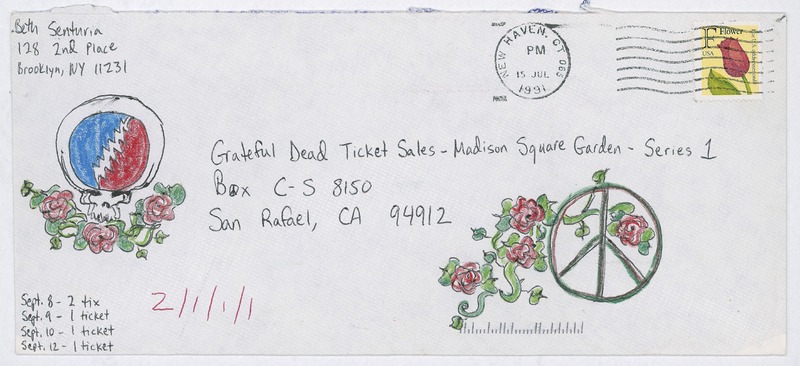 Beth Senturia
128 2nd Place
Brooklyn, NY 11231
NEW HAVEN, CT 065
PM
15 JUL
1991
F Flower
USA
Grateful Dead Ticket Sales - Madison Square Garden - Series 1
Box C-S 8150
San Rafael, CA 94912
Sept. 8 - 2 tix
Sept. 9 - 1 ticket
Sept. 10 - 1 ticket
Sept. 12 - 1 ticket
2/1/1/1